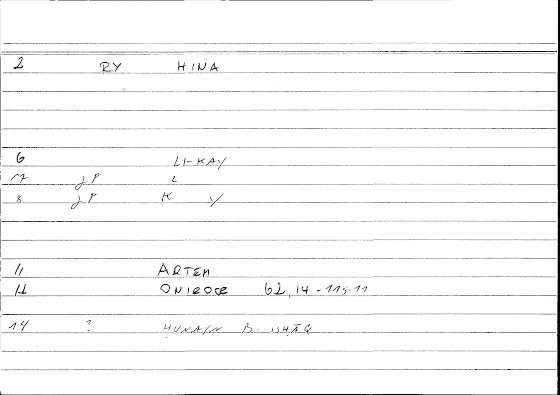 2 RY HINA
6 LI-KAY
17 JP L
8 JP K Y
11 ARTEM
12 ONIROCR 62,14-115.11
14 ? ḤUNAIN B. ISḤĀQ